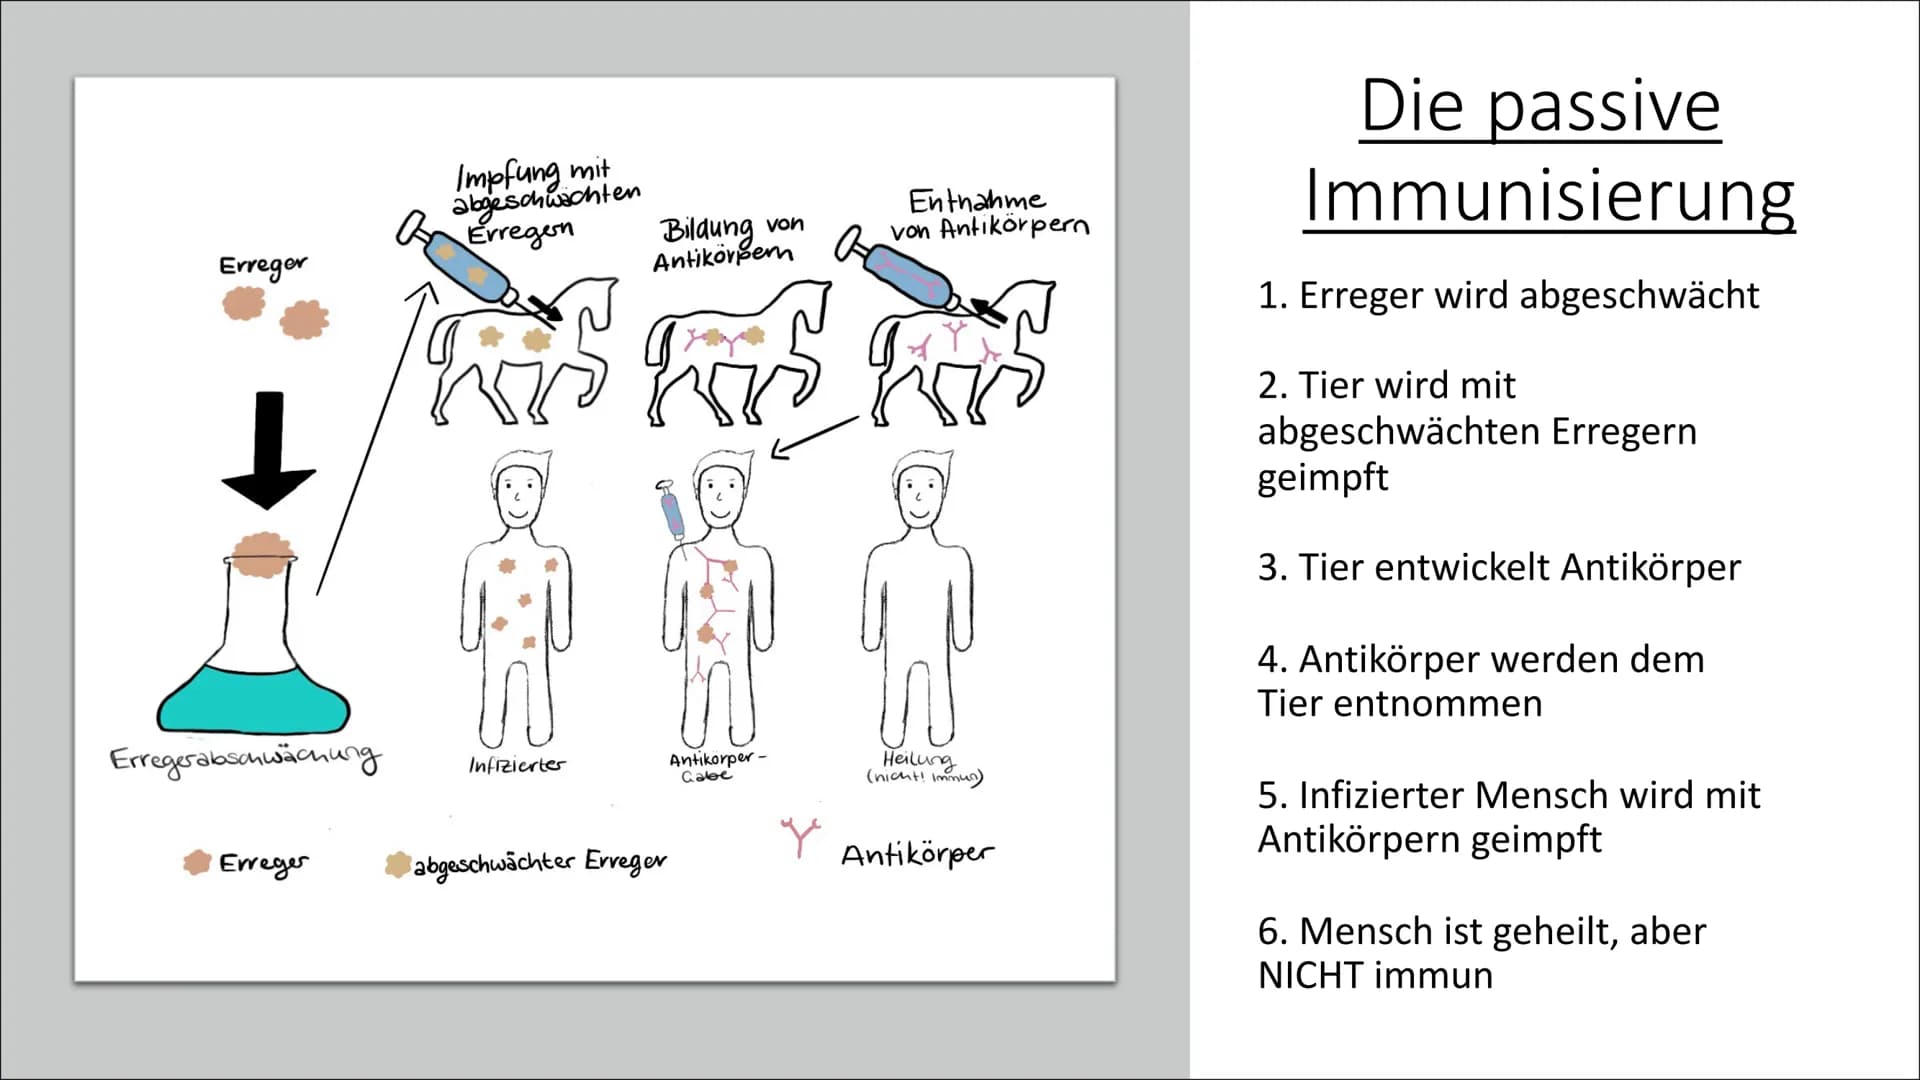 Die passive
Immunisierung
1. Erreger wird abgeschwächt
2. Tier wird mit
abgeschwächten Erregern
geimpft
3. Tier entwickelt Antikörper
4. Antikörper werden dem
Tier entnommen
5. Infizierter Mensch wird mit
Antikörpern geimpft
6. Mensch ist geheilt, aber
NICHT immun
Impfung mit
abgeschwächten
Erregern
Bildung von
Antikörpern
Entnahme
von Antikörpern
Erreger
Erregerabschwächung
Infizierter
Antikörper-
Gabe
Heilung
(nicht! immun)
Erreger
abgeschwächter Erreger
Antikörper